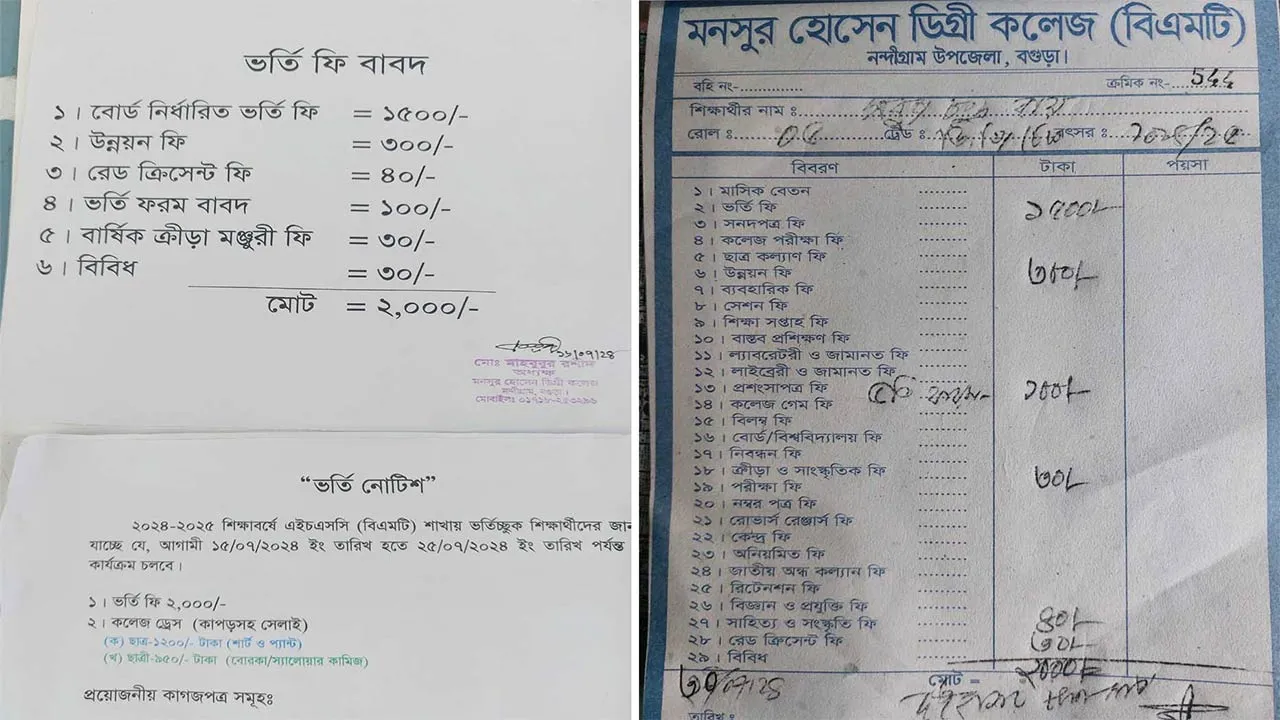 ভর্তি ফি বাবদ
১। বোর্ড নির্ধারিত ভর্তি ফি = ১৫০০/-
২। উন্নয়ন ফি = ৩০০/-
৩। রেড ক্রিসেন্ট ফি = ৪০/-
৪। ভর্তি ফরম বাবদ = ১০০/-
৫। বার্ষিক ক্রীড়া মঞ্জুরী ফি = ৩০/-
৬। বিবিধ = ৩০/-
মোট = ২,০০০/-
মোঃ মাহবুবুর রশীদ
অধ্যক্ষ
মনসুর হোসেন ডিগ্রী কলেজ
নন্দীগ্রাম, বগুড়া।
"ভর্তি নোটিশ"
২০২৪-২০২৫ শিক্ষাবর্ষে এইচএসসি (বিএমটি) শাখায় ভর্তিচ্ছুক শিক্ষার্থীদের জান
যাচ্ছে যে, আগামী ১৫/০৭/২০২৪ ইং তারিখ হতে ২৫/০৭/২০২৪ ইং তারিখ পর্যন্ত
কার্যক্রম চলবে।
১। ভর্তি ফি ২,০০০/-
২। কলেজ ড্রেস (কাপড়সহ সেলাই)
(ক) ছাত্র-১২০০/- টাকা (শার্ট ও প্যান্ট)
(খ) ছাত্রী-৯৫০/- টাকা (বোরকা/স্যালোয়ার কামিজ)
প্রয়োজনীয় কাগজপত্র সমূহঃ
মনসুর হোসেন ডিগ্রী কলেজ (বিএমটি)
নন্দীগ্রাম উপজেলা, বগুড়া।
বহি নং-.............. ক্রমিক নং- ৫৬৬
শিক্ষার্থীর নাম ঃ
রোল ঃ ০৫ ট্রেড ঃ বৎসর ঃ ২০২৪/২৫
বিবরণ টাকা পয়সা
১। মাসিক বেতন
২। ভর্তি ফি ১৫০০/-
৩। সনদপত্র ফি
৪। কলেজ পরীক্ষা ফি
৫। ছাত্র কল্যাণ ফি
৬। উন্নয়ন ফি ৩০০/-
৭। ব্যবহারিক ফি
৮। সেশন ফি
৯। শিক্ষা সপ্তাহ ফি
১০। বাস্তব প্রশিক্ষণ ফি
১১। ল্যাবরেটরী ও জামানত ফি
১২। লাইব্রেরী ও জামানত ফি
১৩। প্রশংসাপত্র ফি ১০০/-
১৪। কলেজ গেম ফি
১৫। বিলম্ব ফি
১৬। বোর্ড/বিশ্ববিদ্যালয় ফি
১৭। নিবন্ধন ফি
১৮। ক্রীড়া ও সাংস্কৃতিক ফি ৩০/-
১৯। পরীক্ষা ফি
২০। নম্বর পত্র ফি
২১। রোভার্স রেঞ্জার্স ফি
২২। কেন্দ্র ফি
২৩। অনিয়মিত ফি
২৪। জাতীয় অন্ধ কল্যান ফি
২৫। রিটেনশন ফি
২৬। বিজ্ঞান ও প্রযুক্তি ফি
২৭। সাহিত্য ও সংস্কৃতি ফি ৪০/-
২৮। রেড ক্রিসেন্ট ফি ৩০/-
২৯। বিবিধ
মোট = ২০০০/-
৩০/০৭/২৪
তারিখ ঃ